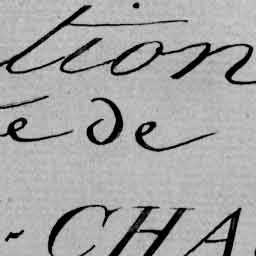 tion
é de
- CHA